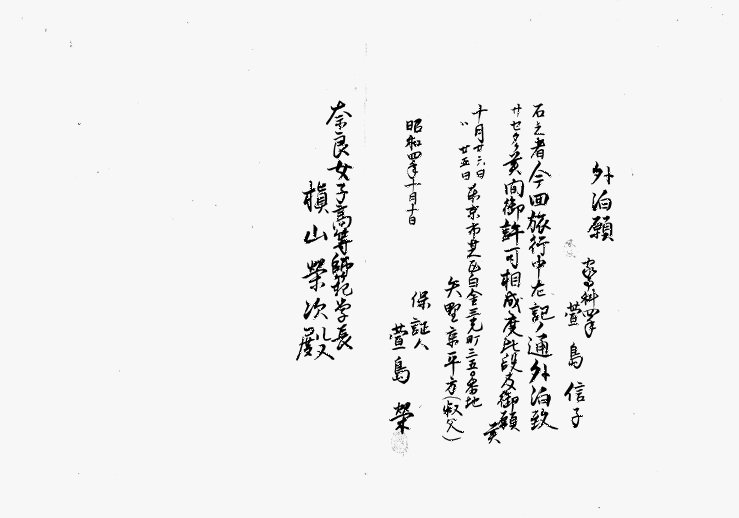 外泊願
家事科四年
萱島信子
右之者今回旅行中左記ノ通外泊致
サセタク候間御許可相成度此段及御願候
十月廿六日
〃廿五日
東京市芝区白金三光町三五〇番地
矢野 平方(叔父)
昭和四年十月十日
保証人
萱島 榮
奈良女子高等師範学長
槇山榮次殿